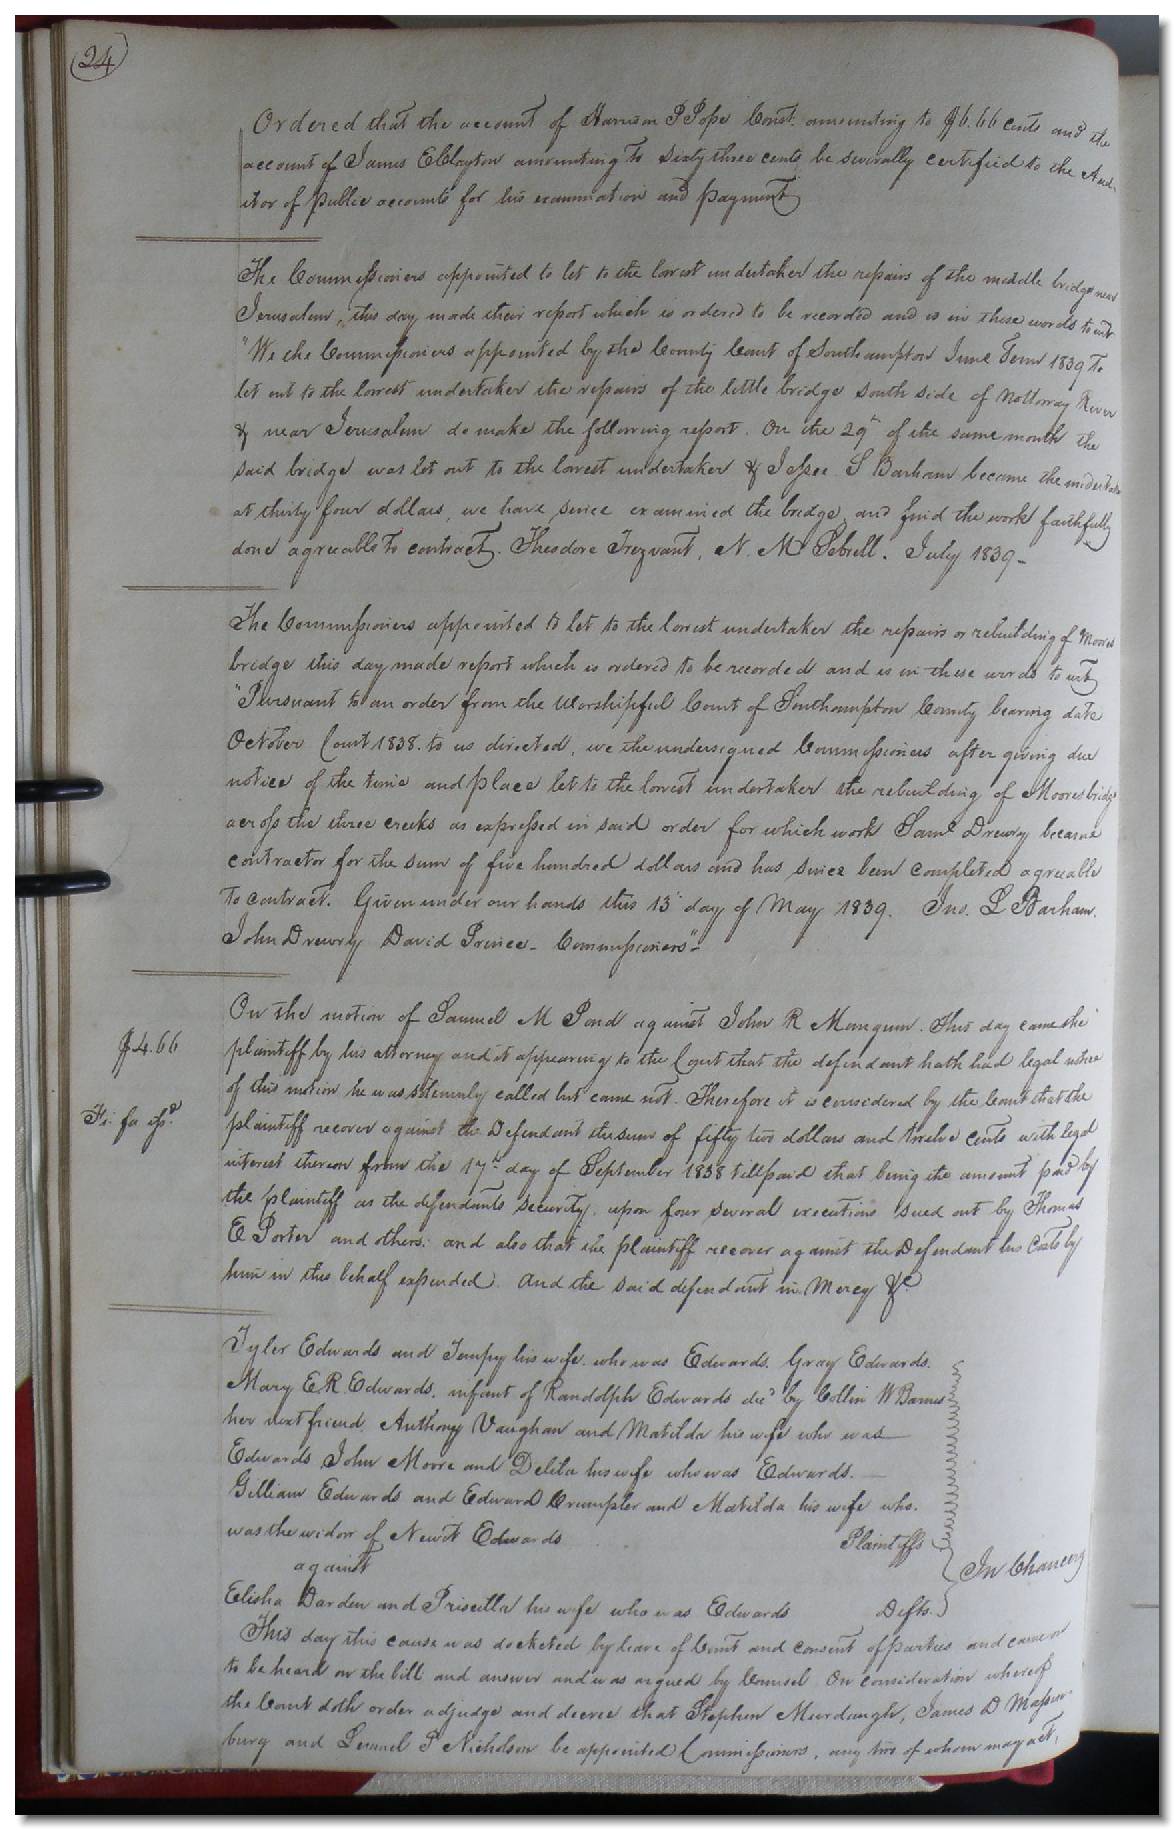 24
Ordered that the account of Harrison P Pope Const. amounting to $6.66 cents and the
account of James E Clayton amounting to Sixty three cents be severally certified to the Aud-
itor of public accounts for his examination and payment
The Commissioners appointed to let to the lowest undertaker the repairs of the middle bridge near
Jerusalem, this day made their report which is ordered to be recorded and is in these words to wit
"We the Commissioners appointed by the County Court of Southampton June Term 1839 To
let out to the lowest undertaker the repairs of the little bridge south side of Nottoway River
& near Jerusalem do make the following report. On the 29th of the same month the
said bridge was let out to the lowest undertaker & Jesse S Barham become the undertaker
at thirty four dollars, we have since examined the bridge and find the work faithfully
done agreeable to contract. Theodore Trezvant, N. M Sebrell. July 1839-
The Commissioners appointed to let to the lowest undertaker the repairs or rebuilding of Moores
bridge this day made report which is ordered to be recorded and is in these words to wit
"Pursuant to an order from the Worshipful Court of Southampton County bearing date
October Court 1838. to us directed, we the undersigned Commissioners after giving due
notice of the time and place let to the lowest undertaker the rebuilding of Moores bridge
across the three creeks as expressed in said order for which work Saml Drewry became
contractor for the sum of five hundred dollars and has since been completed agreeable
to contract. Given under our hands this 13 day of May 1839. Jno. L Barham.
John Drewry David Prince - Commissioners"-
On the motion of Samuel M Pond against John R Mangum. This day came the
$4.66
plaintiff by his attorney and it appearing to the Court that the defendant hath had legal notice
of this motion he was solemnly called but came not. Therefore it is considered by the Court that the
Fi. fa issd.
plaintiff recover against the Defendant the sum of fifty two dollars and twelve cents with legal
interest thereon from the 17th day of September 1838 till paid that being the amount paid by
the plaintiff as the defendants security, upon four several executions sued out by Thomas
E Porter and others: and also that the plaintiff recover against the Defendant his Costs by
him in this behalf expended. And the said defendant in Mercy &c
Tyler Edwards and Tempy his wife. who was Edwards. Gray Edwards.
Mary E.R. Edwards. infant of Randolph Edwards decd by Collin W Barnes
her next friend. Anthony Vaughan and Matilda his wife who was
Edwards John Moore and Delila his wife who was Edwards.
Gilliam Edwards and Edward Crumpler and Matilda his wife who.
was the widow of Newit Edwards Plaintiffs
against
In Chancery
Elisha Darden and Priscilla his wife who was Edwards Defts.
This day this cause was docketed by leave of Court and consent of parties and came on
to be heard on the bill and answer and was argued by Counsel On consideration whereof
the Court doth order adjudge and decree that Stephen Murdaugh, James D Massen-
burg and Lemuel P Nicholson be appointed Commissioners, any two of whom may act,